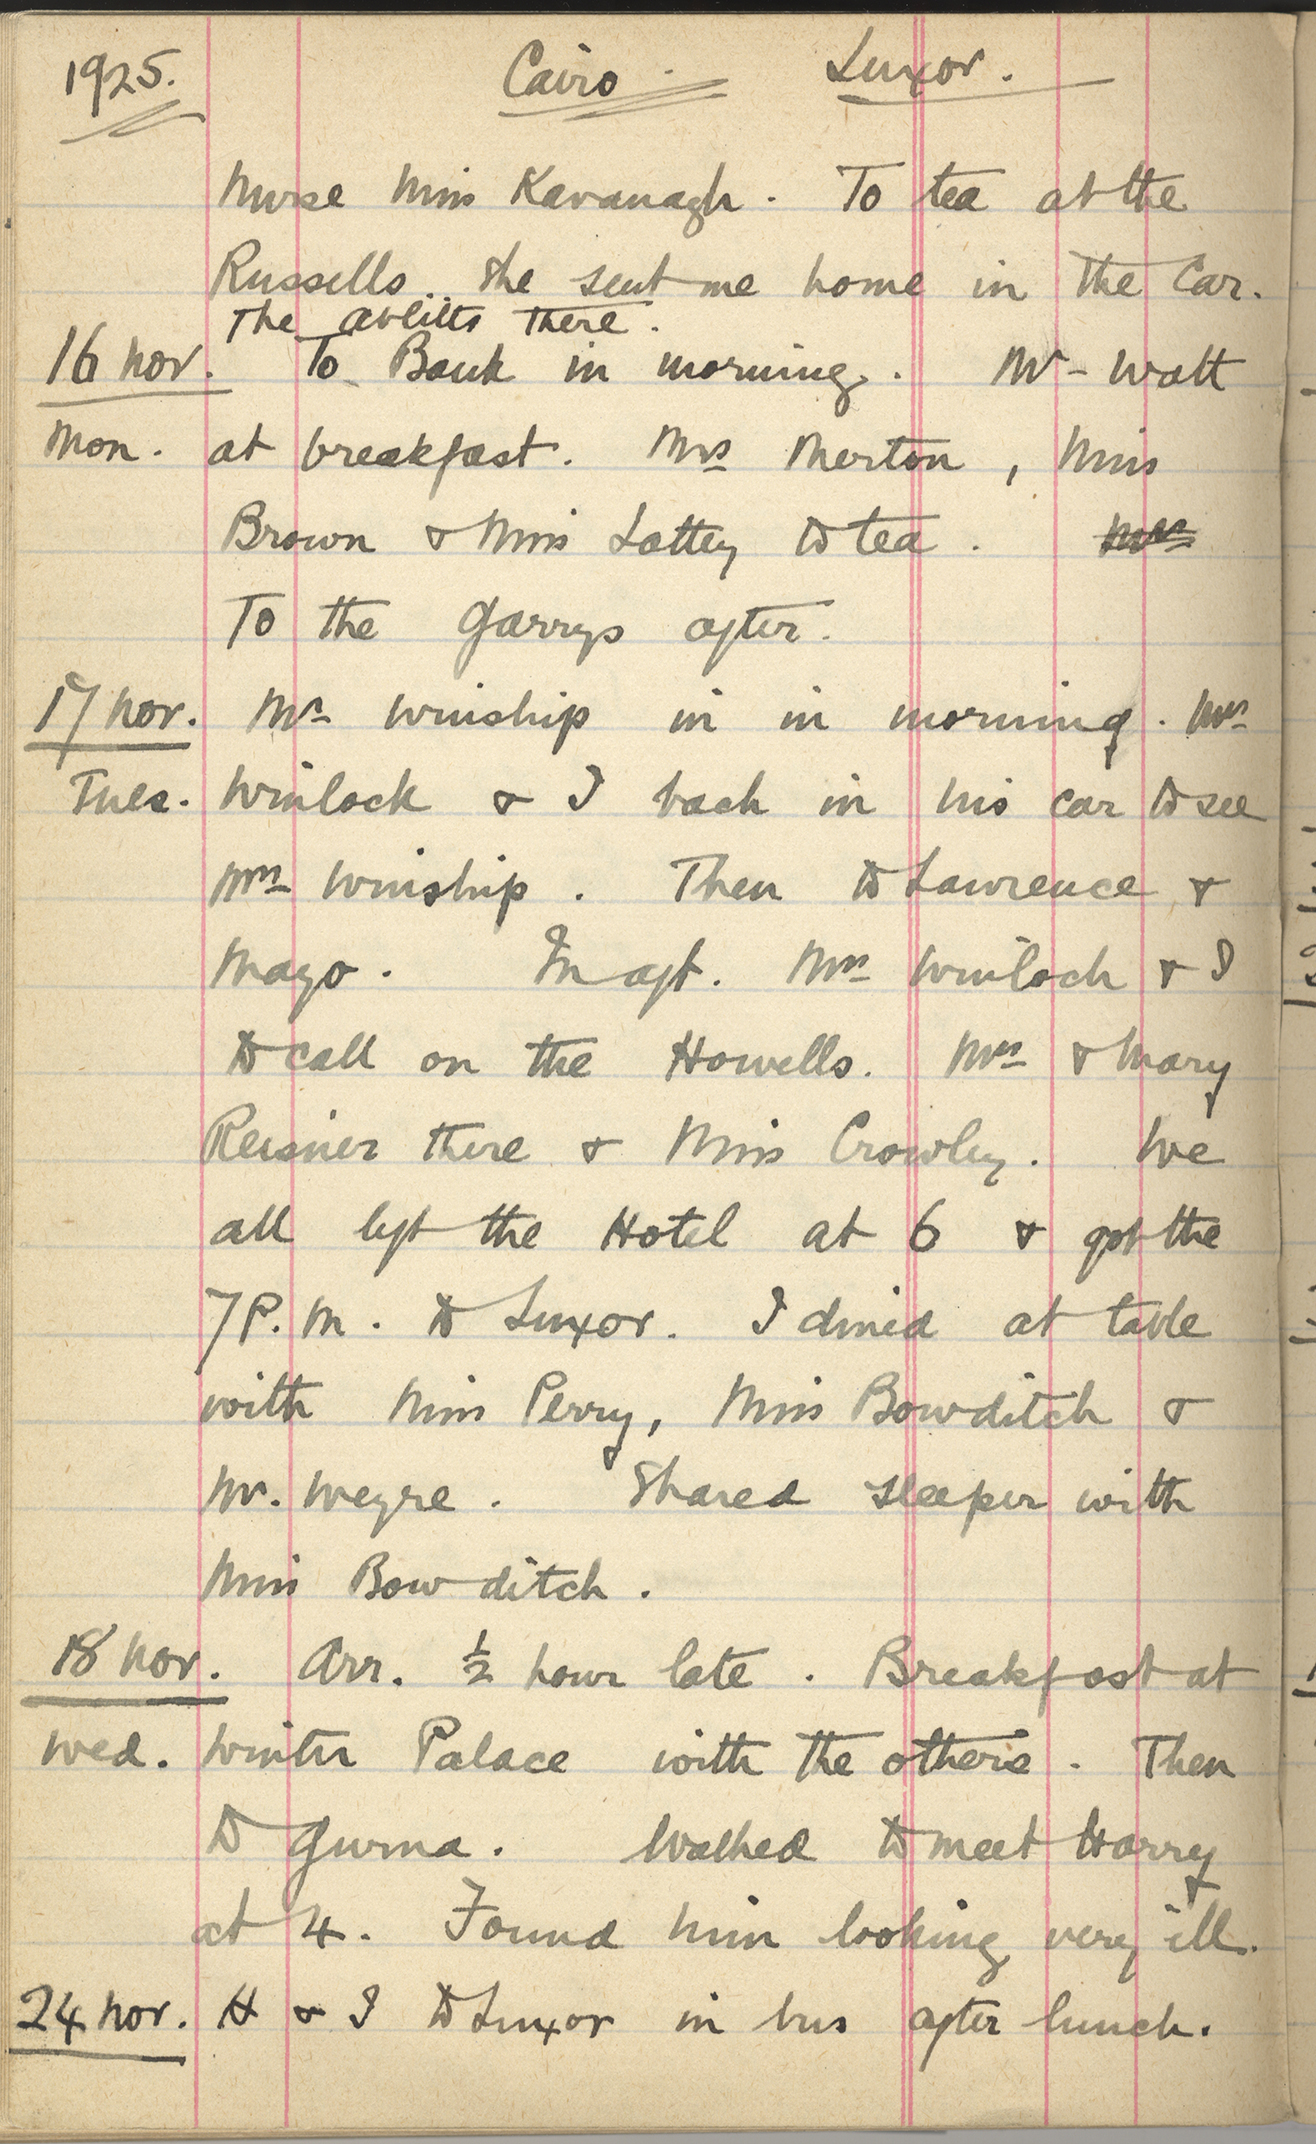 1925. Cairo. Luxor.
Nurse Miss Kavanagh. To tea at the
Russells. She sent me home in the Car.
The there.
16 Nov. To Bank in morning. Mr Watt
Mon. at breakfast. Mrs Merton, Miss
Brown & Miss Lattey to tea. Mrs
To the Garrys after.
17 Nov. Mr Winship in in morning. Mrs
Tues. Winlock & I back in his car to see
Mrs Winship. Then to Lawrence &
Mayo. In aft. Mrs Winlock & I
to call on the Howells. Mrs & Mary
Reisner there & Miss Crowley. We
all left the Hotel at 6 & got the
7 P.M. to Luxor. I dined at table
with Miss Perry, Miss Bowditch &
Mr. Weyre. Shared sleeper with
Miss Bowditch.
18 Nov. Arr. ½ hour late. Breakfast at
Wed. Winter Palace with the others. Then
to Gurna. Walked to meet Harry
at 4. Found him looking very ill.
24 Nov. H & I to Luxor in bus after lunch.